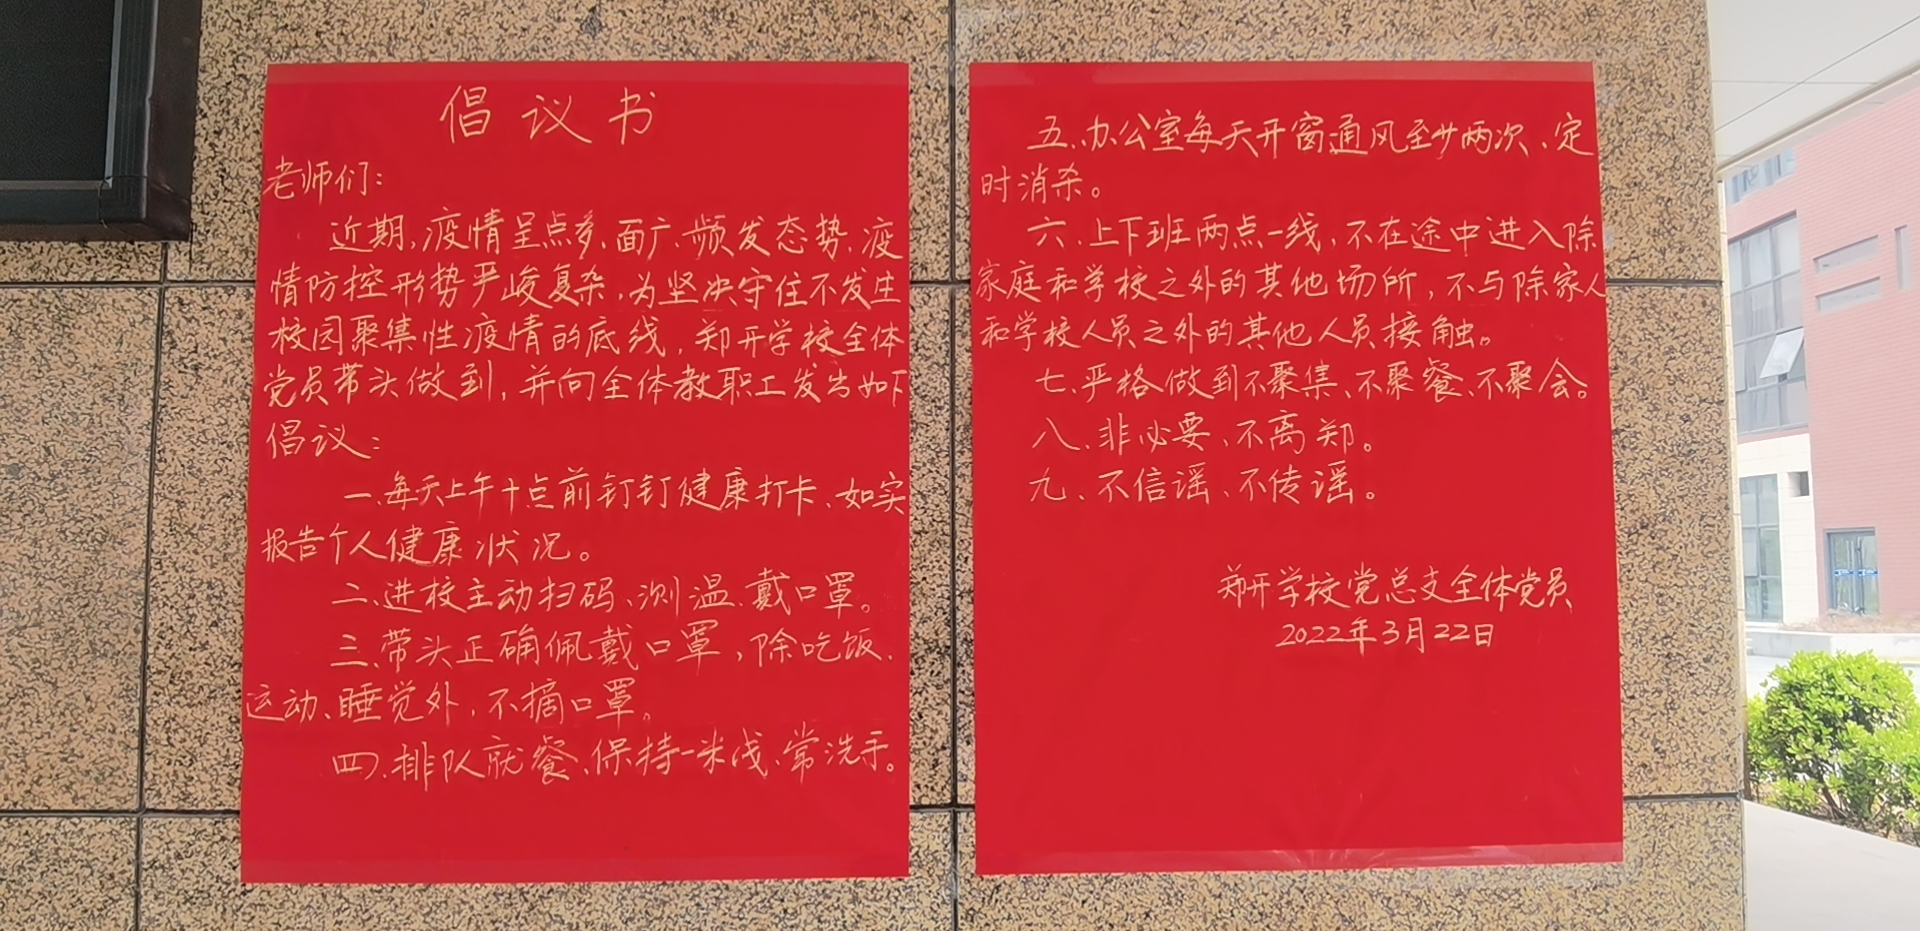 倡议书
老师们：
近期,疫情呈点多、面广、频发态势,疫
情防控形势严峻复杂,为坚决守住不发生
校园聚集性疫情的底线,郑开学校全体
党员带头做到,并向全体教职工发出如下
倡议：
一、每天上午十点前钉钉健康打卡、如实
报告个人健康状况。
二、进校主动扫码、测温、戴口罩。
三、带头正确佩戴口罩,除吃饭、
运动、睡觉外,不摘口罩。
四、排队就餐、保持一米线、常洗手。
五、办公室每天开窗通风至少两次、定
时消杀。
六、上下班两点一线,不在途中进入除
家庭和学校之外的其他场所,不与除家人
和学校人员之外的其他人员接触。
七、严格做到不聚集、不聚餐、不聚会。
八、非必要、不离郑。
九、不信谣、不传谣。
郑开学校党总支全体党员
2022年3月22日